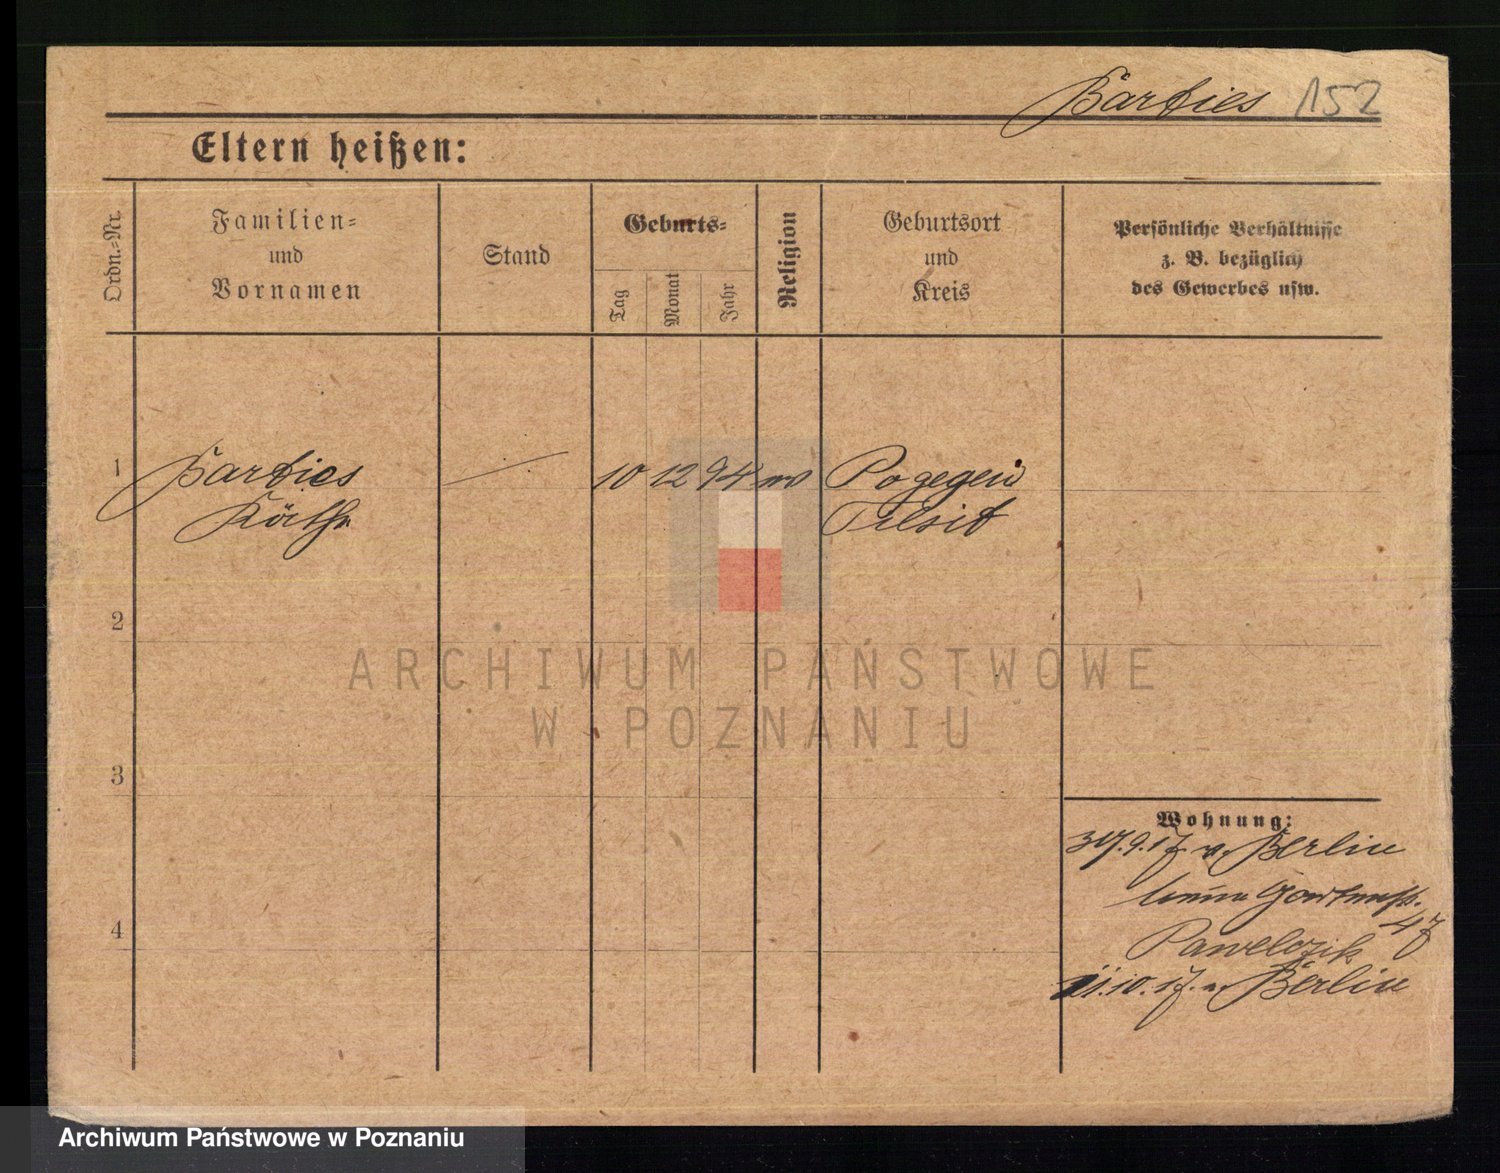 Barties 152
Eltern heißen:
Ordn.=Nr.
Familien=
und
Vornamen
Stand
Geburts=
Tag
Monat
Jahr
Religion
Geburtsort
und
Kreis
Persönliche Verhältnisse
z. B. bezüglich
des Gewerbes usw.
1 Barties 10 12 94 Pogegen
Käthe Tilsit
2
3
4
Wohnung:
.9.17. v. Berlin
47
Pawelczik
11.10.17. n. Berlin
ARCHIWUM PAŃSTWOWE
W POZNANIU
Archiwum Państwowe w Poznaniu